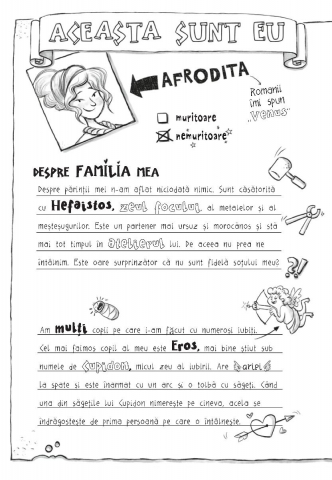 ACEASTA SUNT EU
AFRODITA
Romanii
îmi spun
„Venus”
muritoare
nemuritoare
DESPRE FAMILIA MEA
Despre părinții mei n-am aflat niciodată nimic. Sunt căsătorită
cu Hefaistos, zeul focului, al metalelor și al
meșteșugurilor. Este un partener mai ursuz și morocănos și stă
mai tot timpul în atelierul lui. De aceea nu prea ne
întâlnim. Este oare surprinzător că nu sunt fidelă soțului meu?
?!
Am mulți copii pe care i-am făcut cu numeroși iubiți.
Cel mai faimos copil al meu este Eros, mai bine știut sub
numele de Cupidon, micul zeu al iubirii. Are aripi
la spate și este înarmat cu un arc și o tolbă cu săgeți. Când
una din săgețile lui Cupidon nimerește pe cineva, acela se
îndrăgostește de prima persoană pe care o întâlnește.